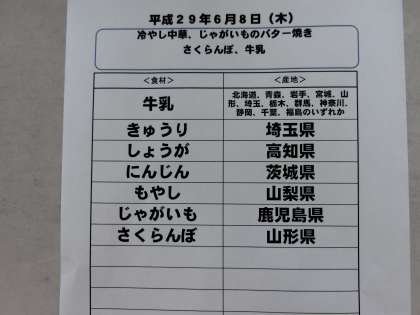 平成29年6月8日(木)
冷やし中華、じゃがいものバター焼き
さくらんぼ、牛乳
<食材> <産地>
牛乳 北海道、青森、岩手、宮城、山
形、埼玉、栃木、群馬、神奈川、
静岡、千葉、福島のいずれか
きゅうり 埼玉県
しょうが 高知県
にんじん 茨城県
もやし 山梨県
じゃがいも 鹿児島県
さくらんぼ 山形県